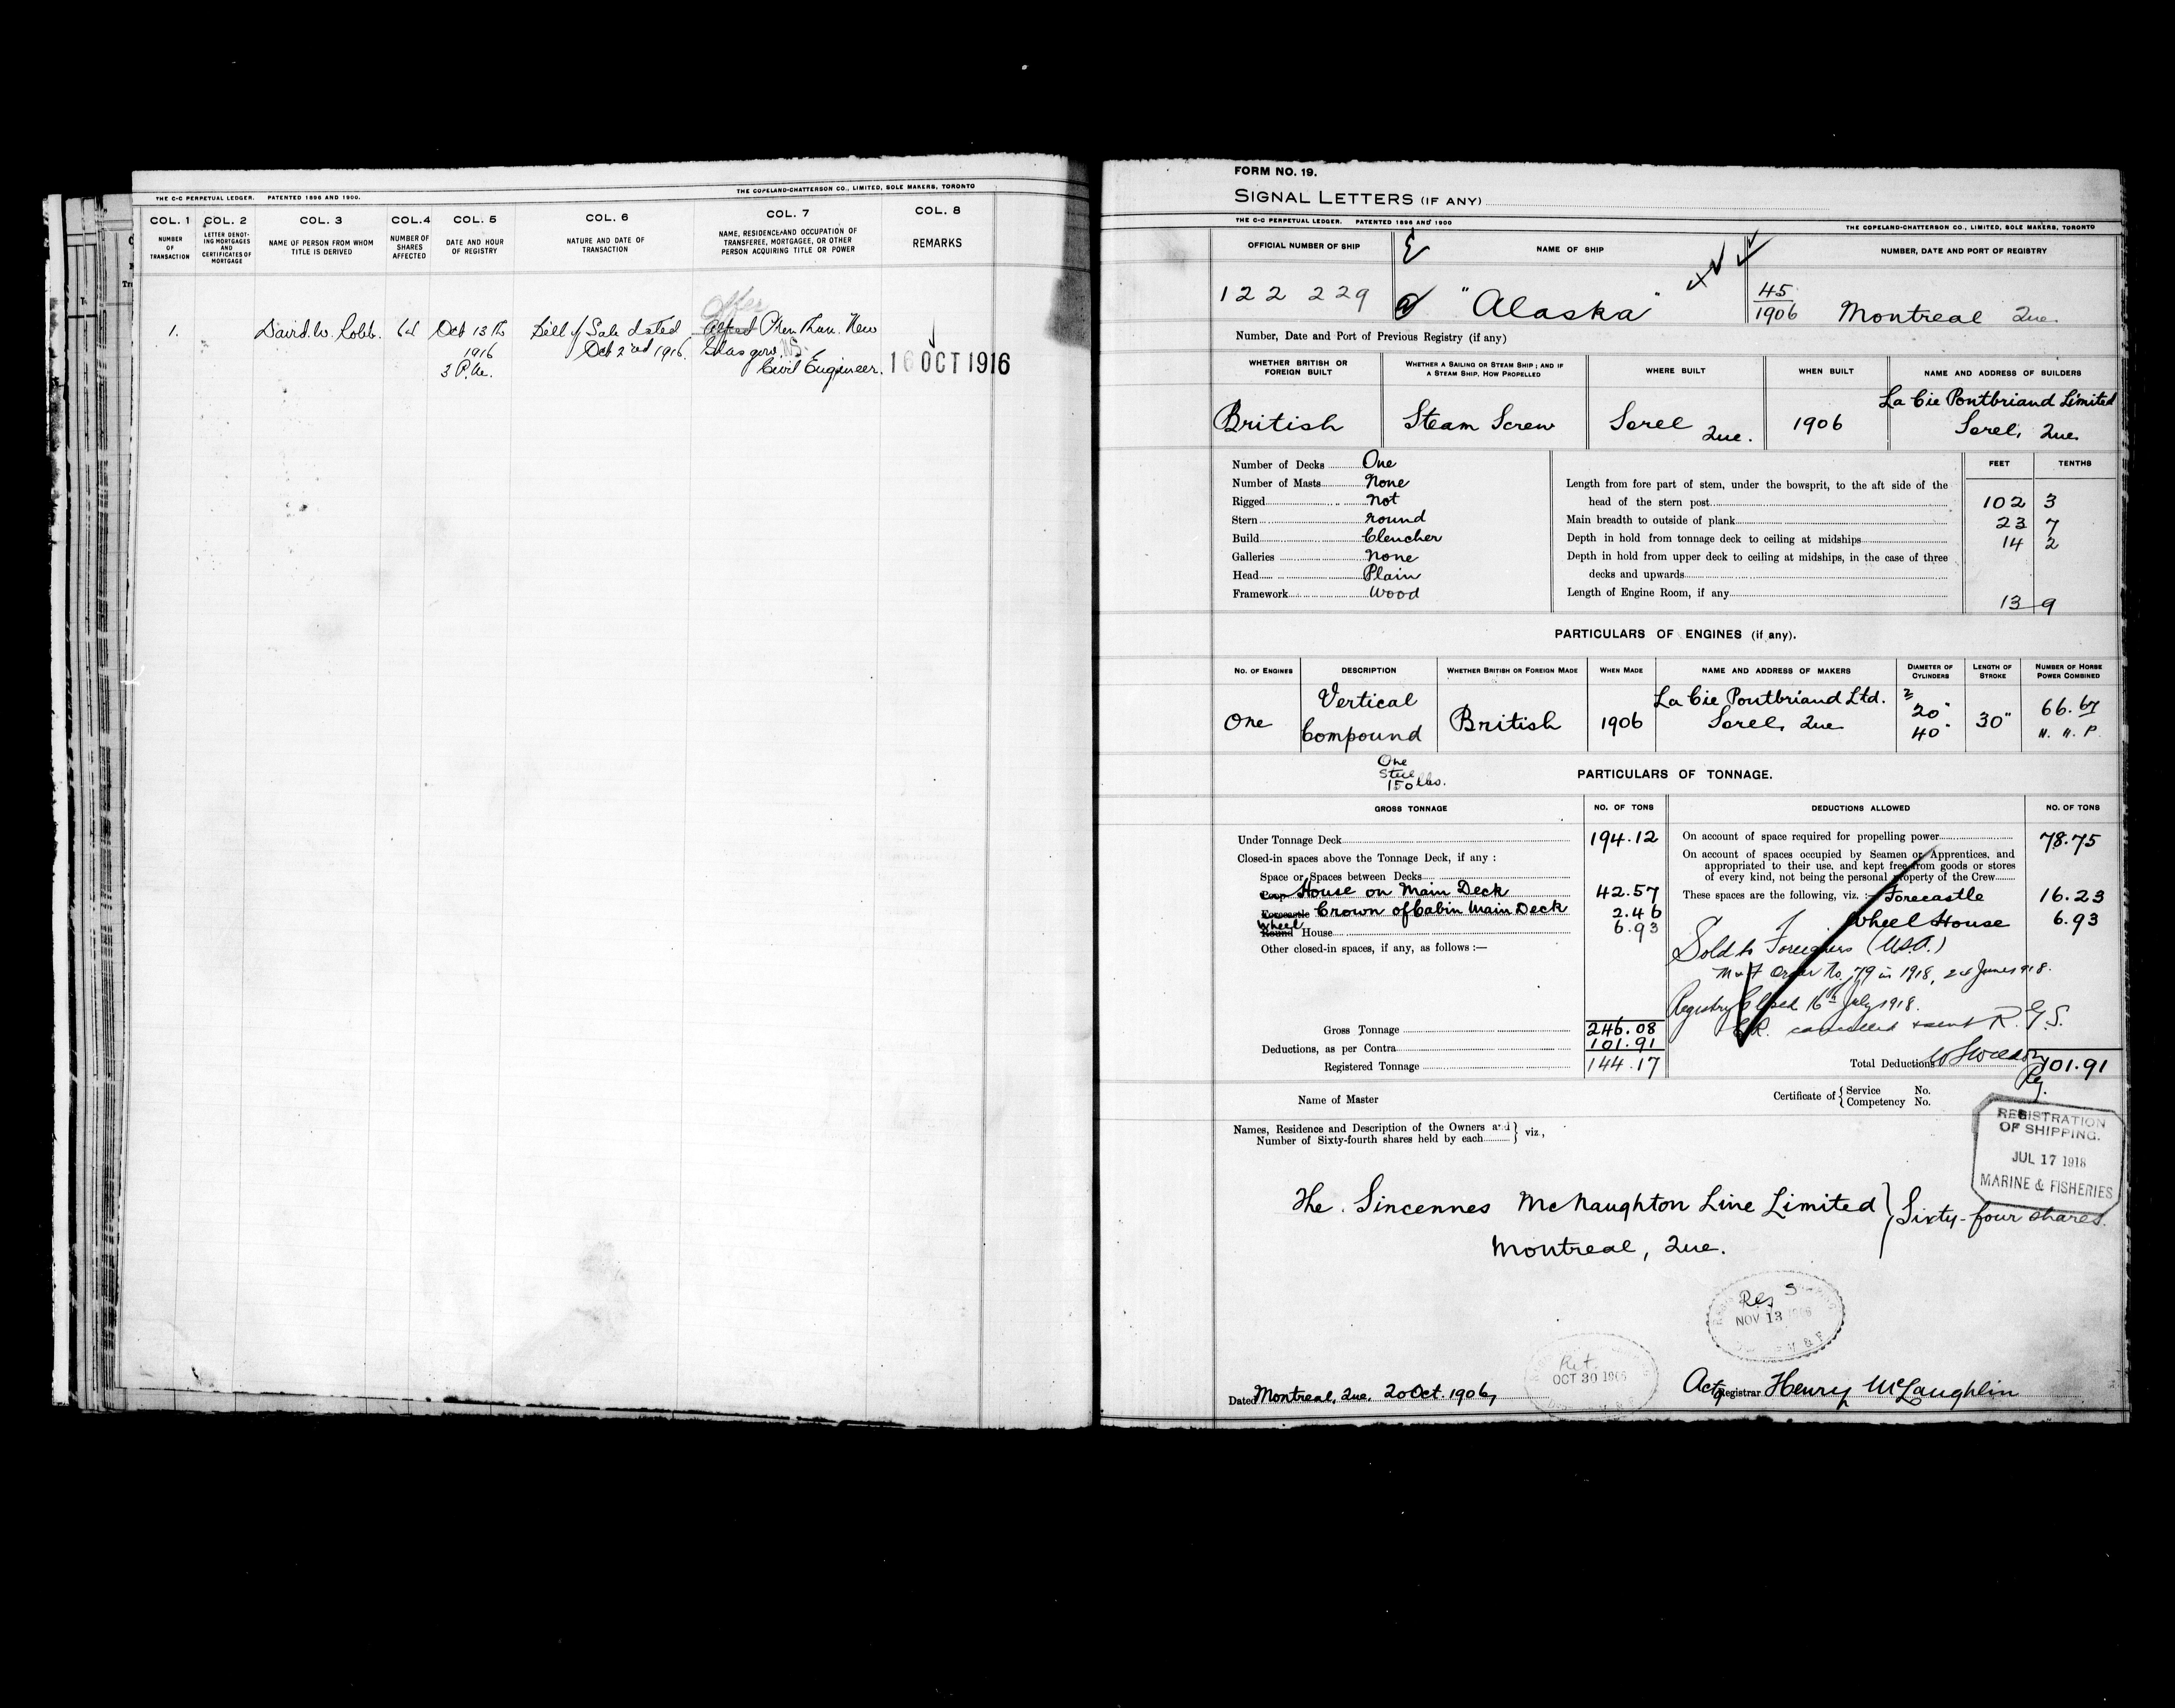 THE C-C PERPETUAL LEDGER. PATENTED 1896 AND 1900. THE COPELAND-CHATTERSON CO., LIMITED, SOLE MAKERS, TORONTO
COL. 1 COL. 2 COL. 3 COL.4 COL. 5 COL. 6 COL. 7 COL. 8
NUMBER OF TRANSACTION
LETTER DENOTING MORTGAGES AND CERTIFICATES OF MORTGAGE
NAME OF PERSON FROM WHOM TITLE IS DERIVED
NUMBER OF SHARES AFFECTED
DATE AND HOUR OF REGISTRY
NATURE AND DATE OF TRANSACTION
NAME, RESIDENCE AND OCCUPATION OF TRANSFEREE, MORTGAGEE, OR OTHER PERSON ACQUIRING TITLE OR POWER
REMARKS
1. David W. Robb. 64 Oct 13th Bill of Sale dated New
1916 Oct 2nd 1916. Glasgow N.S.
3 P.M. Civil Engineer. 16 OCT 1916
FORM NO. 19.
SIGNAL LETTERS (IF ANY)
THE C-C PERPETUAL LEDGER. PATENTED 1896 AND 1900 THE COPELAND-CHATTERSON CO., LIMITED, SOLE MAKERS, TORONTO
OFFICIAL NUMBER OF SHIP NAME OF SHIP NUMBER, DATE AND PORT OF REGISTRY
122 229 "Alaska" 45/1906 Montreal Que.
Number, Date and Port of Previous Registry (if any)
WHETHER BRITISH OR FOREIGN BUILT
WHETHER A SAILING OR STEAM SHIP; AND IF A STEAM SHIP, HOW PROPELLED
WHERE BUILT
WHEN BUILT
NAME AND ADDRESS OF BUILDERS
La Cie Pontbriand Limited
British Steam Screw Sorel Que. 1906 Sorel, Que.
Number of Decks One
Number of Masts None
Rigged Not
Stern round
Build Clencher
Galleries None
Head Plain
Framework Wood
FEET TENTHS
Length from fore part of stem, under the bowsprit, to the aft side of the
head of the stern post 102 3
Main breadth to outside of plank 23 7
Depth in hold from tonnage deck to ceiling at midships 14 2
Depth in hold from upper deck to ceiling at midships, in the case of three
decks and upwards
Length of Engine Room, if any 13 9
PARTICULARS OF ENGINES (if any).
NO. OF ENGINES DESCRIPTION WHETHER BRITISH OR FOREIGN MADE WHEN MADE NAME AND ADDRESS OF MAKERS DIAMETER OF CYLINDERS LENGTH OF STROKE NUMBER OF HORSE POWER COMBINED
One Vertical Compound British 1906 La Cie Pontbriand Ltd. Sorel, Que 2 20" 40" 30" 66.67 N.H.P.
One
Steel
150 lbs.
PARTICULARS OF TONNAGE.
GROSS TONNAGE NO. OF TONS DEDUCTIONS ALLOWED NO. OF TONS
Under Tonnage Deck 194.12
Closed-in spaces above the Tonnage Deck, if any :
Space or Spaces between Decks
Poop House on Main Deck 42.57
Forecastle Crown of Cabin Main Deck 2.46
Round Wheel House 6.93
Other closed-in spaces, if any, as follows :—
Gross Tonnage 246.08
Deductions, as per Contra 101.91
Registered Tonnage 144.17
On account of space required for propelling power 78.75
On account of spaces occupied by Seamen or Apprentices, and
appropriated to their use, and kept free from goods or stores
of every kind, not being the personal property of the Crew
These spaces are the following, viz. :— Forecastle 16.23
Wheel House 6.93
Sold to Foreigners (U.S.A.)
M & F Order No. 79 in 1918, 24 June 1918.
Registry Closed 16th July 1918.
C.R. cancelled & sent R. G. S.
Total Deductions 101.91
Name of Master Certificate of { Service No. Competency No.
Names, Residence and Description of the Owners and
Number of Sixty-fourth shares held by each } viz.,
REGISTRATION
OF SHIPPING.
JUL 17 1918
MARINE & FISHERIES
The Sincennes McNaughton Line Limited } Sixty-four shares.
Montreal, Que.
NOV 13 1906
OCT 30 1906
Dated Montreal, Que. 20 Oct. 1906, Actg Registrar Henry McLaughlin